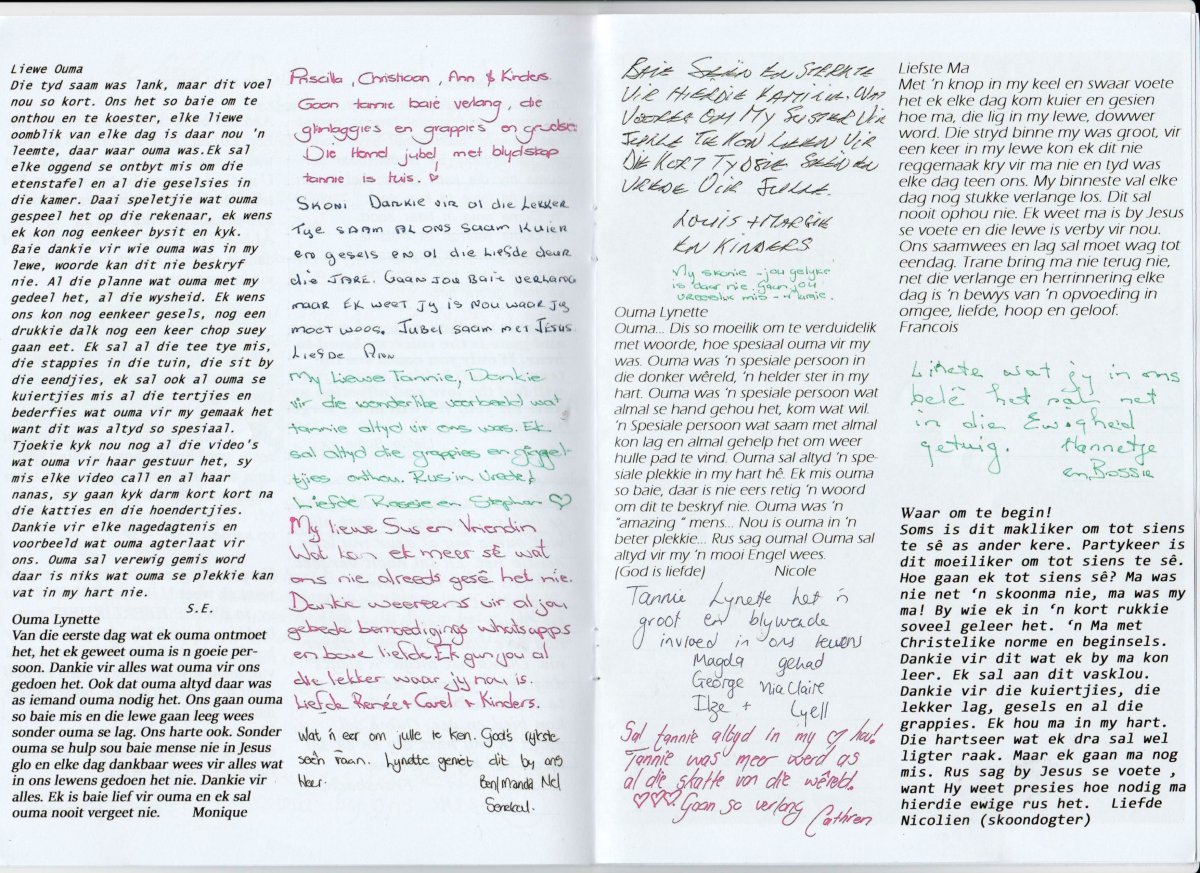 Liewe Ouma
Die tyd saam was lank, maar dit voel
nou so kort. Ons het so baie om te
onthou en te koester, elke liewe
oomblik van elke dag is daar nou 'n
leemte, daar waar ouma was.Ek sal
elke oggend se ontbyt mis om die
etenstafel en al die geselsies in
die kamer. Daai speletjie wat ouma
gespeel het op die rekenaar, ek wens
ek kon nog eenkeer bysit en kyk.
Baie dankie vir wie ouma was in my
lewe, woorde kan dit nie beskryf
nie. Al die planne wat ouma met my
gedeel het, al die wysheid. Ek wens
ons kon nog eenkeer gesels, nog een
drukkie dalk nog een keer chop suey
gaan eet. Ek sal al die tee tye mis,
die stappies in die tuin, die sit by
die eendjies, ek sal ook al ouma se
kuiertjies mis al die tertjies en
bederfies wat ouma vir my gemaak het
want dit was altyd so spesiaal.
Tjoekie kyk nou nog al die video's
wat ouma vir haar gestuur het, sy
mis elke video call en al haar
nanas, sy gaan kyk darm kort kort na
die katties en die hoendertjies.
Dankie vir elke nagedagtenis en
voorbeeld wat ouma agterlaat vir
ons. Ouma sal verewig gemis word
daar is niks wat ouma se plekkie kan
vat in my hart nie.
S.E.
Ouma Lynette
Van die eerste dag wat ek ouma ontmoet
het, het ek geweet ouma is n goeie per-
soon. Dankie vir alles wat ouma vir ons
gedoen het. Ook dat ouma altyd daar was
as iemand ouma nodig het. Ons gaan ouma
so baie mis en die lewe gaan leeg wees
sonder ouma se lag. Ons harte ook. Sonder
ouma se hulp sou baie mense nie in Jesus
glo en elke dag dankbaar wees vir alles wat
in ons lewens gedoen het nie. Dankie vir
alles. Ek is baie lief vir ouma en ek sal
ouma nooit vergeet nie. Monique
Priscilla, Christiaan, Ann & Kinders.
Gaan tannie baie verlang, die
glimlaggies en grappies en
Die Hemel jubel met blydskap
tannie is tuis.
Skoni Dankie vir al die Lekker
Tye saam al ons saam kuier
en gesels en al die Liefde deur
die Jare. Gaan jou Baie verlang
maar Ek weet jy is nou waar jy
moet woog. Jubel saam met Jesus
Liefde
My Liewe Tannie, Dankie
vir die wonderlike voorbeeld wat
tannie altyd vir ons was. Ek
sal altyd die grappies en giggel-
tjies onthou. Rus in Vrede,
Liefde Rossie en Stephan
My liewe Sus en Vriendin
Wat kan ek meer sê wat
ons nie alreeds gesê het nie.
Dankie weereens vir al jou
gebede bemoedigings whatsapps
en bowe liefde. Ek gun jou al
die lekker waar jy nou is.
Liefde Renée + Carel + Kinders.
Wat 'n eer om julle te ken. God's rykste
seën Lynette geniet dit by ons
Heer. Ben/Manda Nel
Senekal.
Baie Seën en Sterkte
vir hierdie Familie.
voorreg om my suster vir
julle te kon leen vir
die kort tydjie Seën en
vrede vir julle.
Louis + Margie
en Kinders
My skonie - jou gelyke
is daar nie. gaan jou
vreeslik mis
Ouma Lynette
Ouma... Dis so moeilik om te verduidelik
met woorde, hoe spesiaal ouma vir my
was. Ouma was 'n spesiale persoon in
die donker wêreld, 'n helder ster in my
hart. Ouma was 'n spesiale persoon wat
almal se hand gehou het, kom wat wil.
'n Spesiale persoon wat saam met almal
kon lag en almal gehelp het om weer
hulle pad te vind. Ouma sal altyd 'n spe-
siale plekkie in my hart hê. Ek mis ouma
so baie, daar is nie eers retig 'n woord
om dit te beskryf nie. Ouma was 'n
"amazing " mens... Nou is ouma in 'n
beter plekkie... Rus sag ouma! Ouma sal
altyd vir my 'n mooi Engel wees.
(God is liefde) Nicole
Tannie Lynette het 'n
groot en blywende
invloed in ons lewens
Magda gehad
George Nia Claire
Ilze + Lyell
Sal tannie altyd in my hou!
Tannie was meer werd as
al die skatte van die wêreld.
Gaan so verlang Cathren
Liefste Ma
Met 'n knop in my keel en swaar voete
het ek elke dag kom kuier en gesien
hoe ma, die lig in my lewe, dowwer
word. Die stryd binne my was groot, vir
een keer in my lewe kon ek dit nie
reggemaak kry vir ma nie en tyd was
elke dag teen ons. My binneste val elke
dag nog stukke verlange los. Dit sal
nooit ophou nie. Ek weet ma is by Jesus
se voete en die lewe is verby vir nou.
Ons saamwees en lag sal moet wag tot
eendag. Trane bring ma nie terug nie,
net die verlange en herrinnering elke
dag is 'n bewys van 'n opvoeding in
omgee, liefde, hoop en geloof.
Francois
Linete wat jy in ons
belê het sal net
in die Ewigheid
getuig. Hannetjie
en Bossie
Waar om te begin!
Soms is dit makliker om tot siens
te sê as ander kere. Partykeer is
dit moeiliker om tot siens te sê.
Hoe gaan ek tot siens sê? Ma was
nie net 'n skoonma nie, ma was my
ma! By wie ek in 'n kort rukkie
soveel geleer het. 'n Ma met
Christelike norme en beginsels.
Dankie vir dit wat ek by ma kon
leer. Ek sal aan dit vasklou.
Dankie vir die kuiertjies, die
lekker lag, gesels en al die
grappies. Ek hou ma in my hart.
Die hartseer wat ek dra sal wel
ligter raak. Maar ek gaan ma nog
mis. Rus sag by Jesus se voete ,
want Hy weet presies hoe nodig ma
hierdie ewige rus het. Liefde
Nicolien (skoondogter)